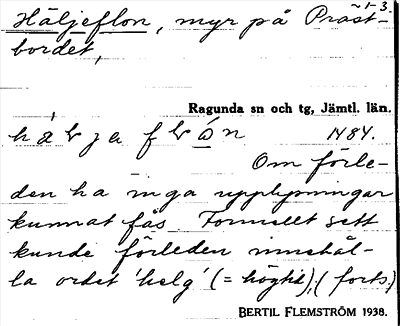 ~1-3.
Häljeflon, myr på Präst-
bordet,
Ragunda sn och tg, Jämtl. län.
1484.
Om förle-
den ha inga upplysningar
kunnat fås. Formellt sett
kunde förleden innehål-
la ordet 'helg' (= högtid), (forts.)
BERTIL FLEMSTRÖM 1938.